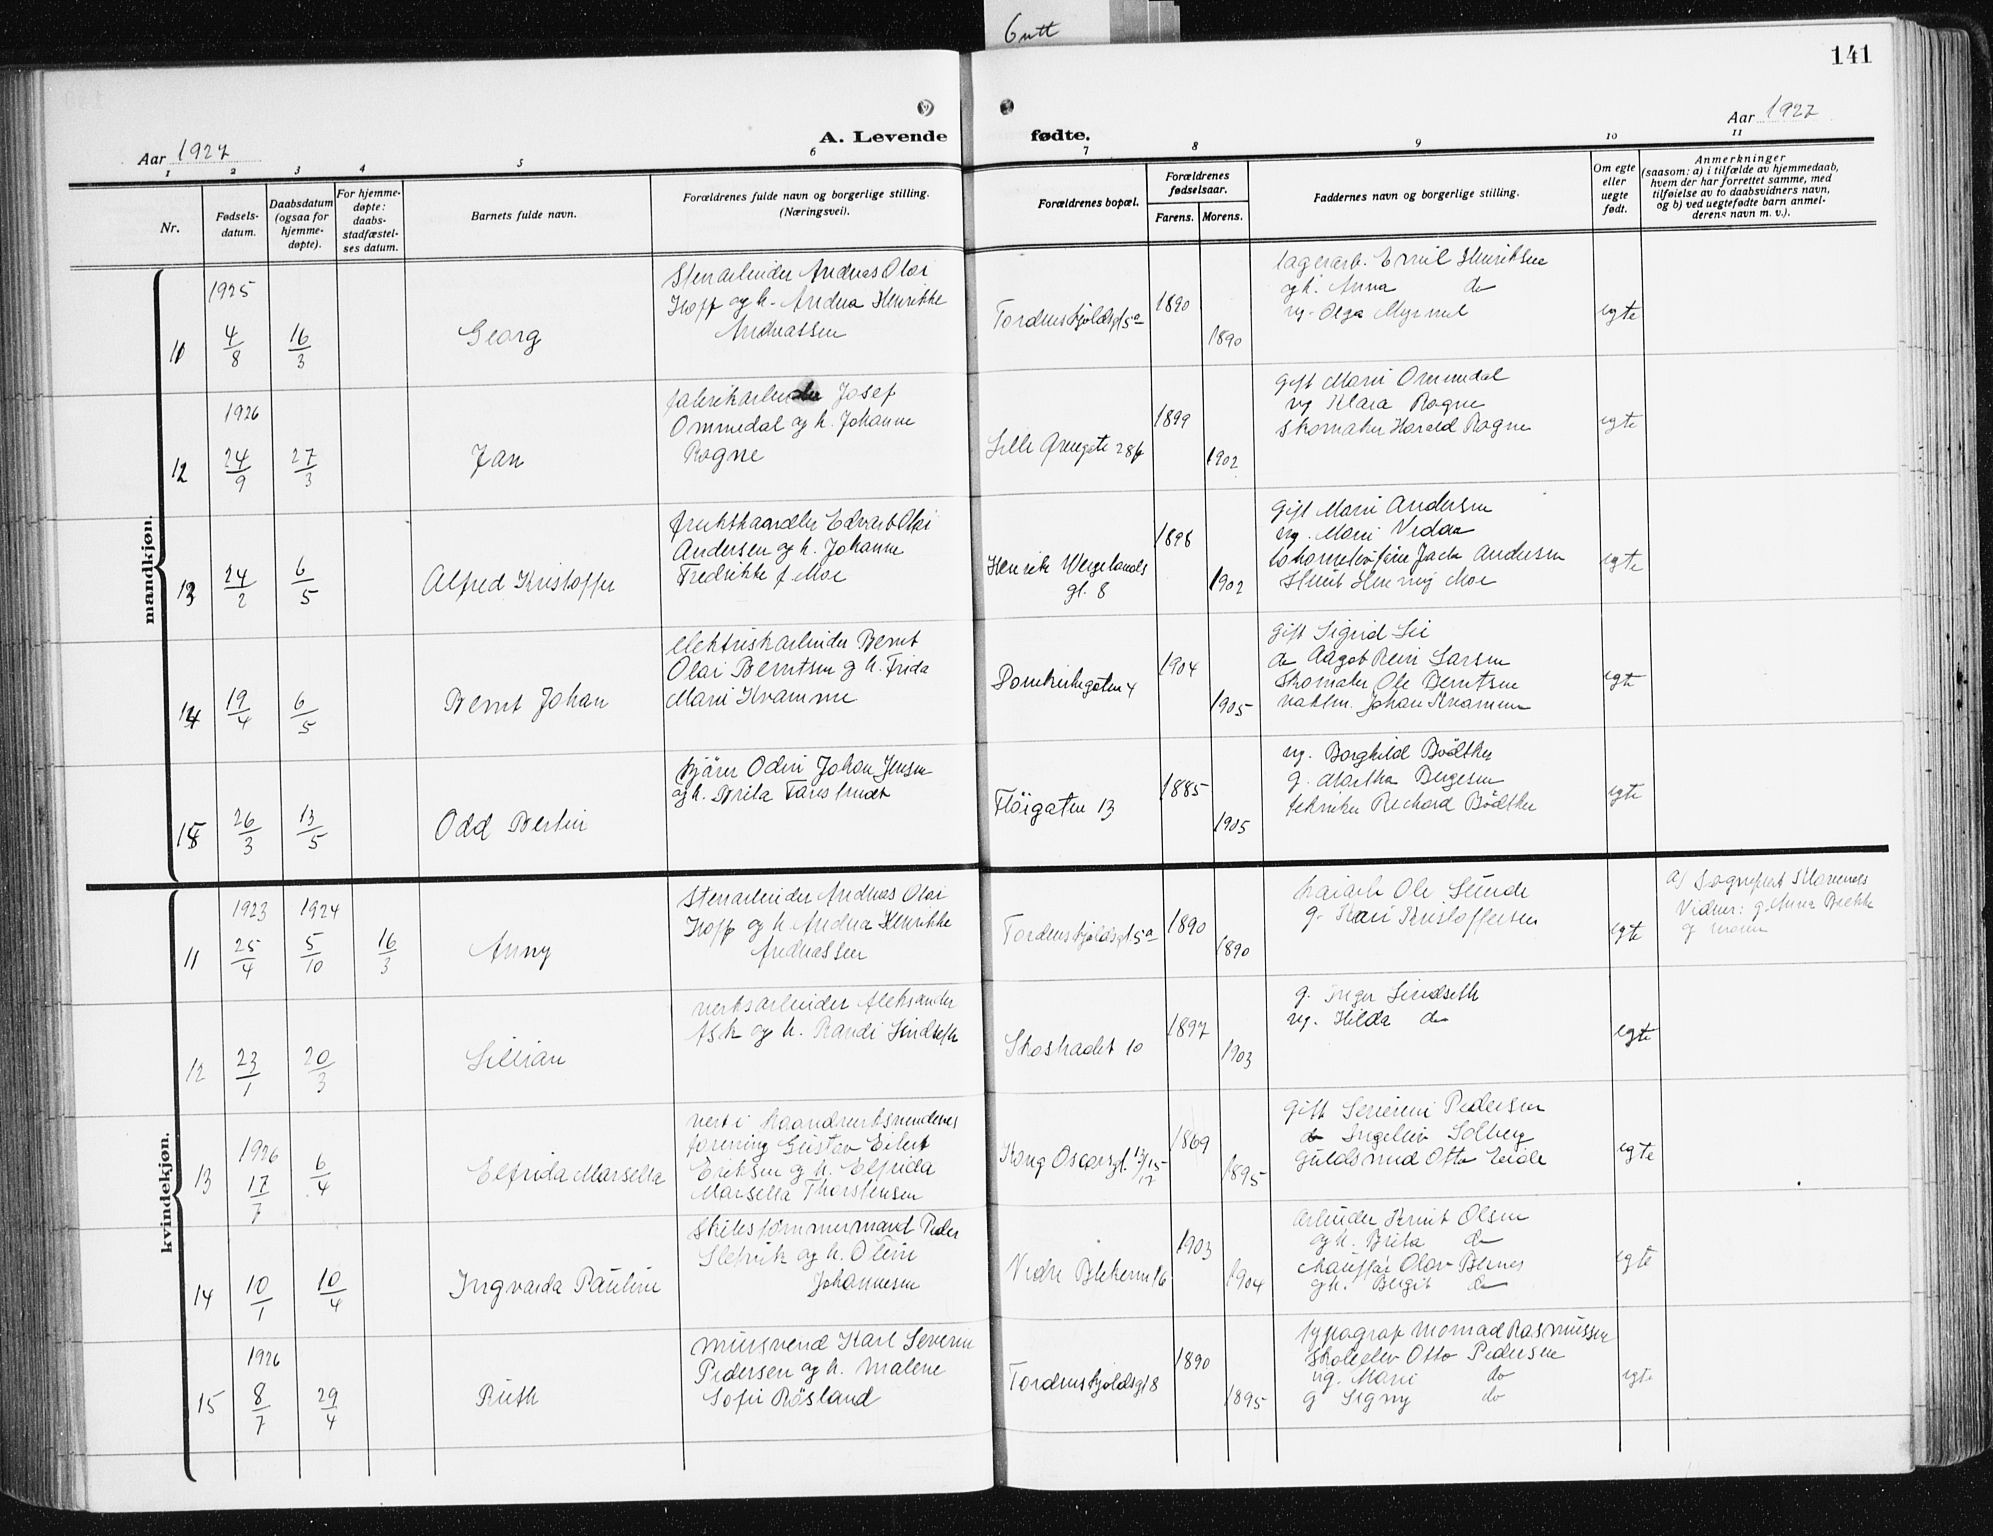 Gutt
141
Aar 1927
A. Levende fødte.
Aar 1927
1 2 3 4 5 6 7 8 9 10 11
Nr.
Fødsels-
datum.
Daabsdatum
(ogsaa for
hjemme-
døpte).
For hjemme-
døpte:
daabs-
stadfæstel-
ses datum.
Barnets fulde navn.
Forældrenes fulde navn og borgerlige stilling.
(Næringsvei).
Forældrenes bopæl.
Forældrenes
fødselsaar.
Farens. Morens.
Faddernes navn og borgerlige stilling.
Om egte
eller
uegte
født.
Anmerkninger
(saasom: a) i tilfælde av hjemmedaab,
hvem der har forrettet samme, med
tilføielse av to daabsvidners navn,
og b) ved uegtefødte barn anmel-
derens navn m. v.).
mandkjøn.
11
1925
4/8
16/3
Georg
Stenarbeider Andreas Olai
Hopp og h. Andrea Henrikke
Andreassen
Tordenskjoldsgt 5a
1890
1890
lagerarb. Emil Henriksen
og h. Anna do
ug. Olga Myrmel
egte
12
1926
24/9
27/3
Jan
fabrikarbeider Josef
Ommedal og h. Johanne
Rogne
Lille Øvregate 28b
1899
1902
gift Marie Ommedal
ug Klara Rogne
skomaker Harald Rogne
egte
13
24/2
6/5
Alfred Kristoffer
frukthandler Edvard Olai
Andersen og h. Johanne
Fredrikke f. Moe
Henrik Wergelands
gt. 8
1898
1902
gift Marie Andersen
ug. Marie Vedaa
lokomotivfører Jack Andersen
Henning Moe
egte
14
19/4
6/5
Bernt Johan
elektriskarbeider Bernt
Olai Berntsen g h. Frida
Marie Kvamme
Domkirkegaten 4
1904
1905
gift Sigrid Lie
do Aagot Larsen
Skomaker Ole Berntsen
Johan Kvamme
egte
15
26/3
13/5
Odd Bertin
Odin Johan Jensen
og h. Brita
Fløigaten 13
1885
1905
ug. Borghild Bødtker
g. Martha Bergesen
tekniker Richard Bødtker
egte
kvindekjøn.
11
1923
25/4
1924
5/10
16/3
Anny
Stenarbeider Andreas Olai
Hopp og h. Andrea Henrikke
Andreassen
Tordenskjoldsgt 5a
1890
1890
kaiarb Ole Sunde
g. Kari Kristoffersen
egte
a) Sogneprest Klaveness
Vidner: g. Anna Brekke
og moren
12
23/1
20/3
Lillian
verksarbeider Aleksander
Ask og h. Randi Lindseth
Skostrædet 10
1897
1903
g. Inger Lindseth
ug. Hilda do
egte
13
1926
17/7
6/4
Elfrida Marsella
vert i Haandverksvendenes
forening Gustav Eilert
Eriksen og h. Elfrida
Marsella Thorstensen
Kong Oscarsgt. 13/15-
17
1869
1895
gift Severine Pedersen
do Ingeleiv Solberg
Guldsmed Otto Eide
egte
14
10/1
10/4
Ingvarda Pauline
Skibstømmermand Peder
Slefvik og h. Oline
Johannesen
Vedre Blekevei 16
1903
1904
arbeider Knut Olsen
og h. Brita do
chauffør Olav Bernes
og h. Bergit do
egte
15
1926
8/7
29/4
Ruth
mursvend Karl Severin
Pedersen og h. Malene
Sofie Røsland
Tordenskjoldsgt 8
1890
1895
typograf Monrad Rasmussen
skoleelev Otto Pedersen
ug. Marie do
g Signy do
egte